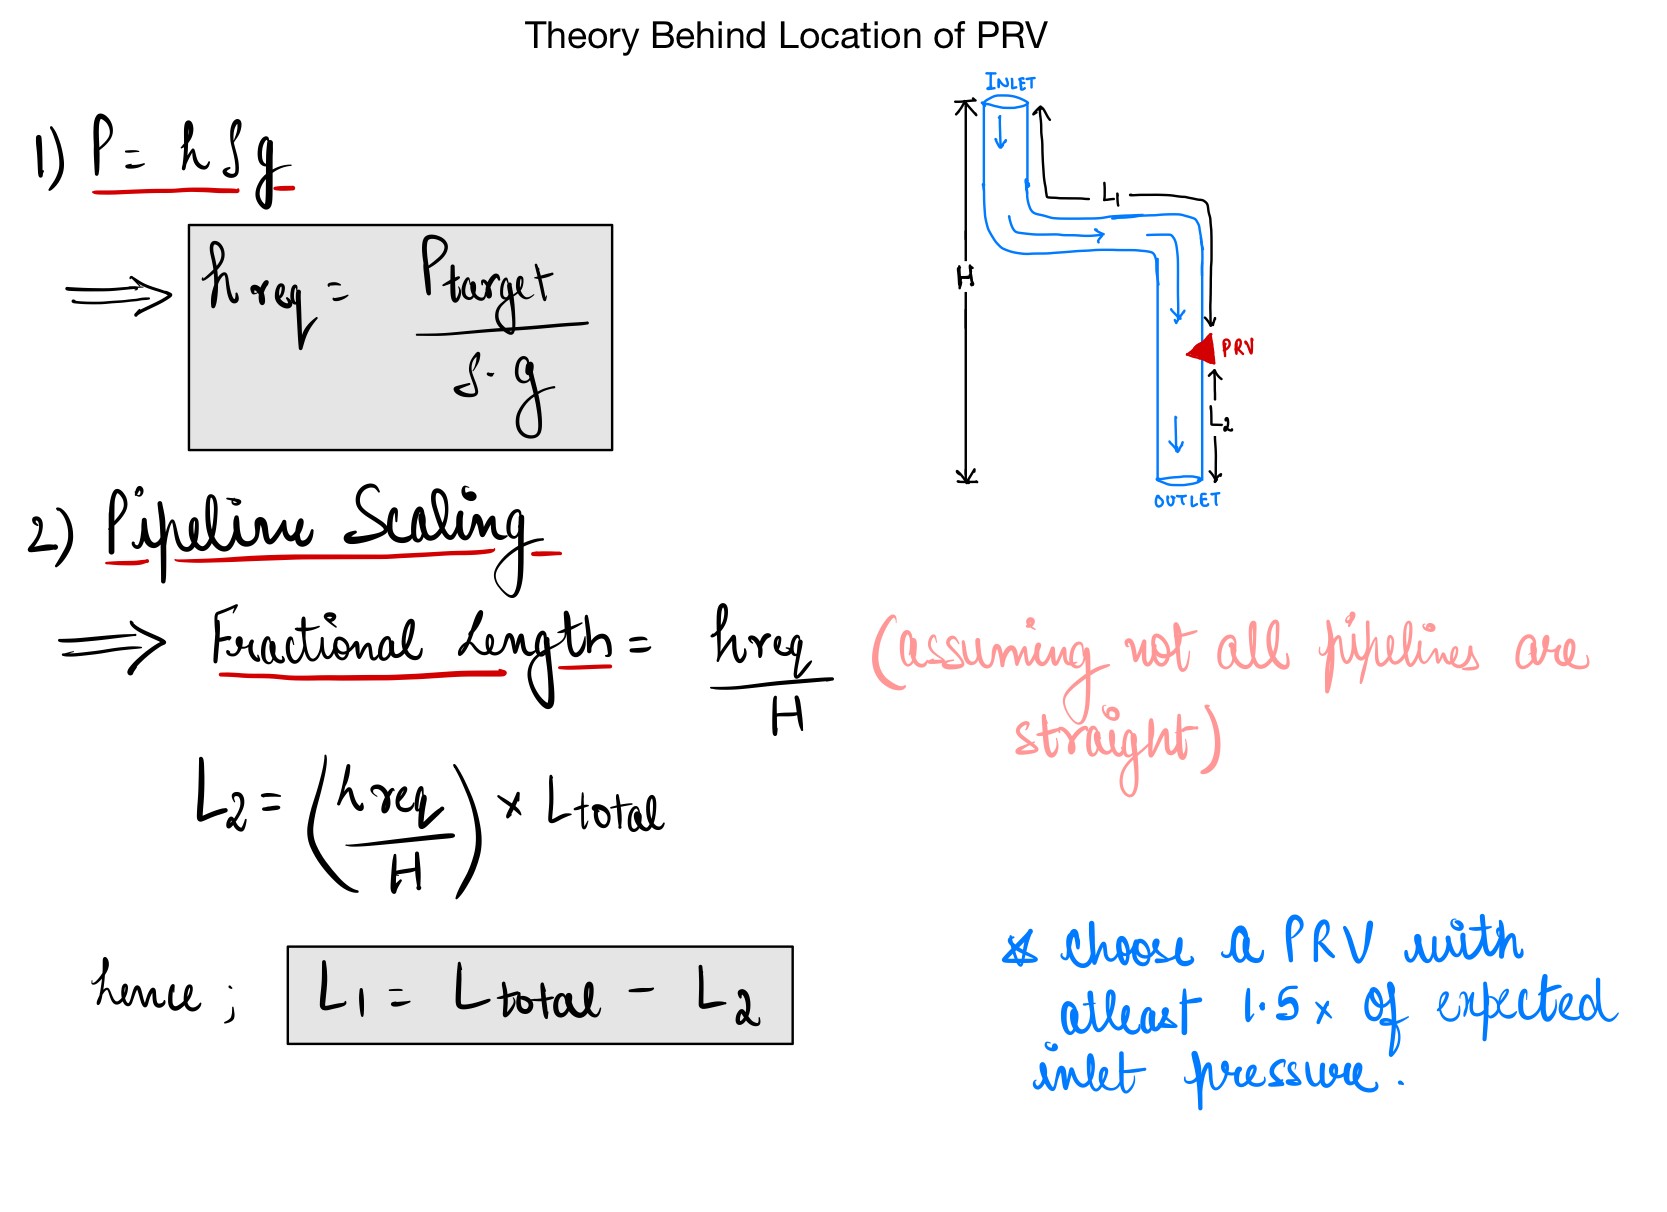 Theory Behind Location of PRV
1) P = hρg
⟹ h req = P target / ρ · g
2) Pipeline Scaling
⟹ Fractional Length = h req / H (assuming not all pipelines are
straight)
L2 = (h req / H) × L total
hence; L1 = L total - L2
INLET
L1
H
PRV
L2
OUTLET
* choose a PRV with
atleast 1.5x of expected
inlet pressure.